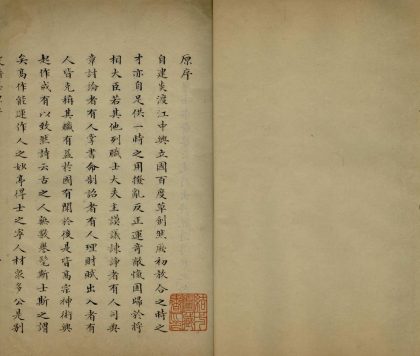 原序
自建炎渡江中興立國百度草創然厥初敷合之時之
才亦自足供一時之用撥亂反正運奇敵愾固歸於將
相大臣若其他列職士大夫主謨議諫諍者有人司典
章討論者有人掌書命制誥者有人理財賦出入者有
人皆克稱其職有益於國有關於後是皆高宗神術興
起作成有以致然詩云古之人無斁譽髦斯士斯之謂
矣高作能運作人之妙孝得士之宁人材眾多公是別